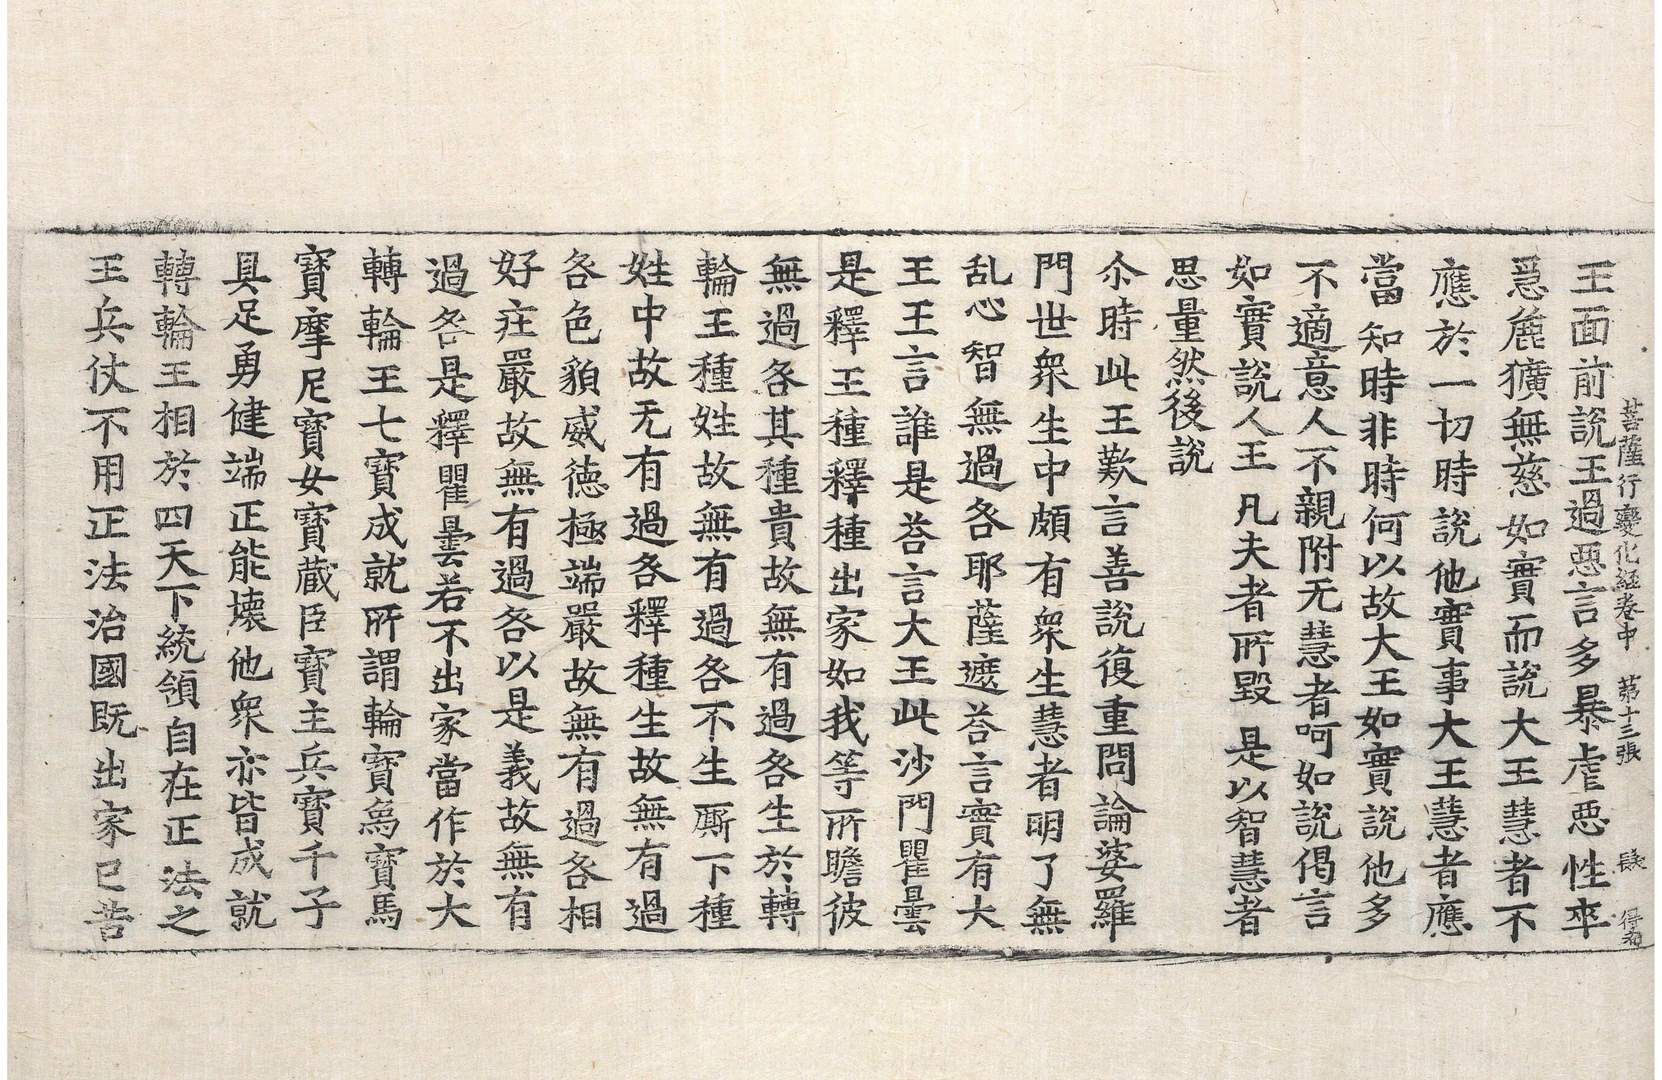 菩薩行變化經卷中　苐十三張　㲲　得布
王面前說王過惡言多暴虐惡性卒
爲麁獷無慈如實而說大王慧者不
應於一切時說他實事大王慧者應
當知時非時何以故大王如實說他多
不適意人不親附无慧者呵如說偈言
如實說人王凡夫者所毀是以智慧者
思量然後說
尒時此王歎言善說復重問論婆羅
門世衆生中頗有衆生慧者明了無
乱心智無過咎耶薩遮荅言實有大
王王言誰是荅言大王此沙門瞿曇
是釋王種釋種出家如我等所瞻彼
無過咎其種貴故無有過咎生於轉
輪王種姓故無有過咎不生廝下種
姓中故无有過咎釋種生故無有過
咎色貌威德極端嚴故無有過咎相
好庄嚴故無有過咎以是義故無有
過咎是釋瞿曇若不出家當作於大
轉輪王七寶成就所謂輪寶爲寶馬
寶摩尼寶女寶藏臣寶主兵寶千子
具足勇健端正能壞他衆亦皆成就
轉輪王相於四天下統領自在正法之
王兵仗不用正法治國既出家已苦